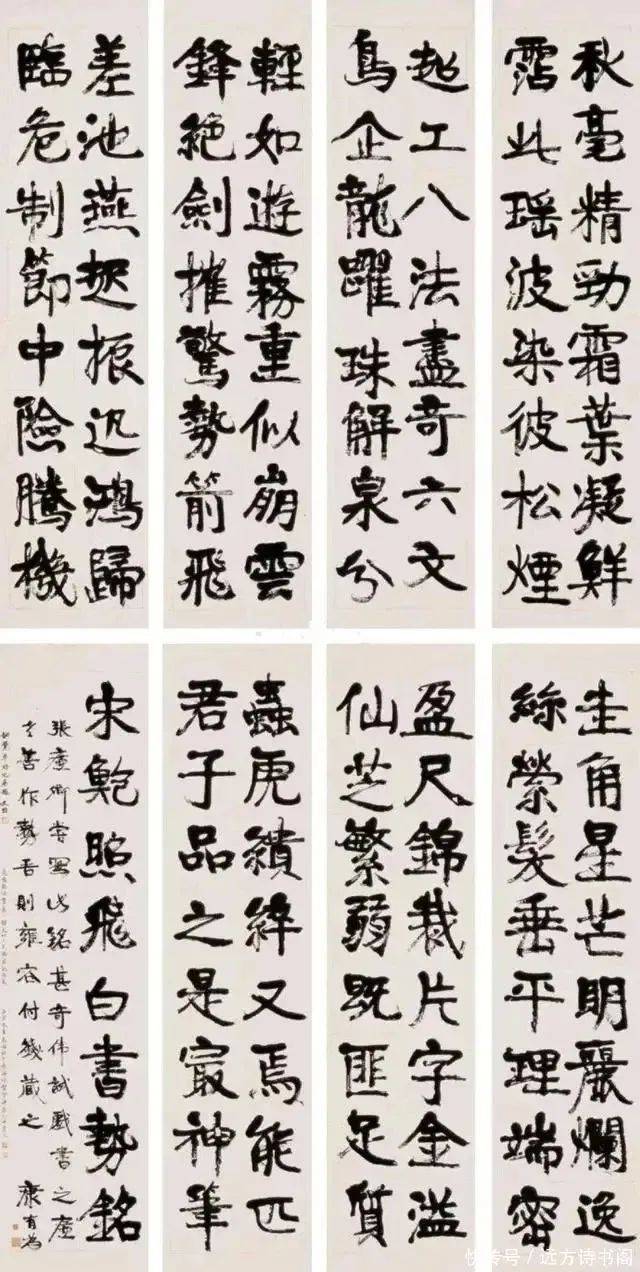 秋毫精勁霜葉凝鮮
霑此瑤波染彼松煙
超工八法盡奇六文
鳥企龍躍珠解泉分
輕如遊霧重似崩雲
鋒絕劍摧驚勢箭飛
差池燕起振迅鴻歸
臨危制節中險騰機
圭角星芒明麗爛逸
絲縈髮垂平理端密
盈尺錦裁片字金溢
仙芝繁弱既匪足質
蟲虎繢綷又焉能匹
君子品之是㝡神筆
宋鮑照飛白書勢銘
張廉卿嘗寫此銘甚奇偉試戲書之廉
善作勢吾則雍容付籛藏之 康有為
快传号 / 远方诗书阁